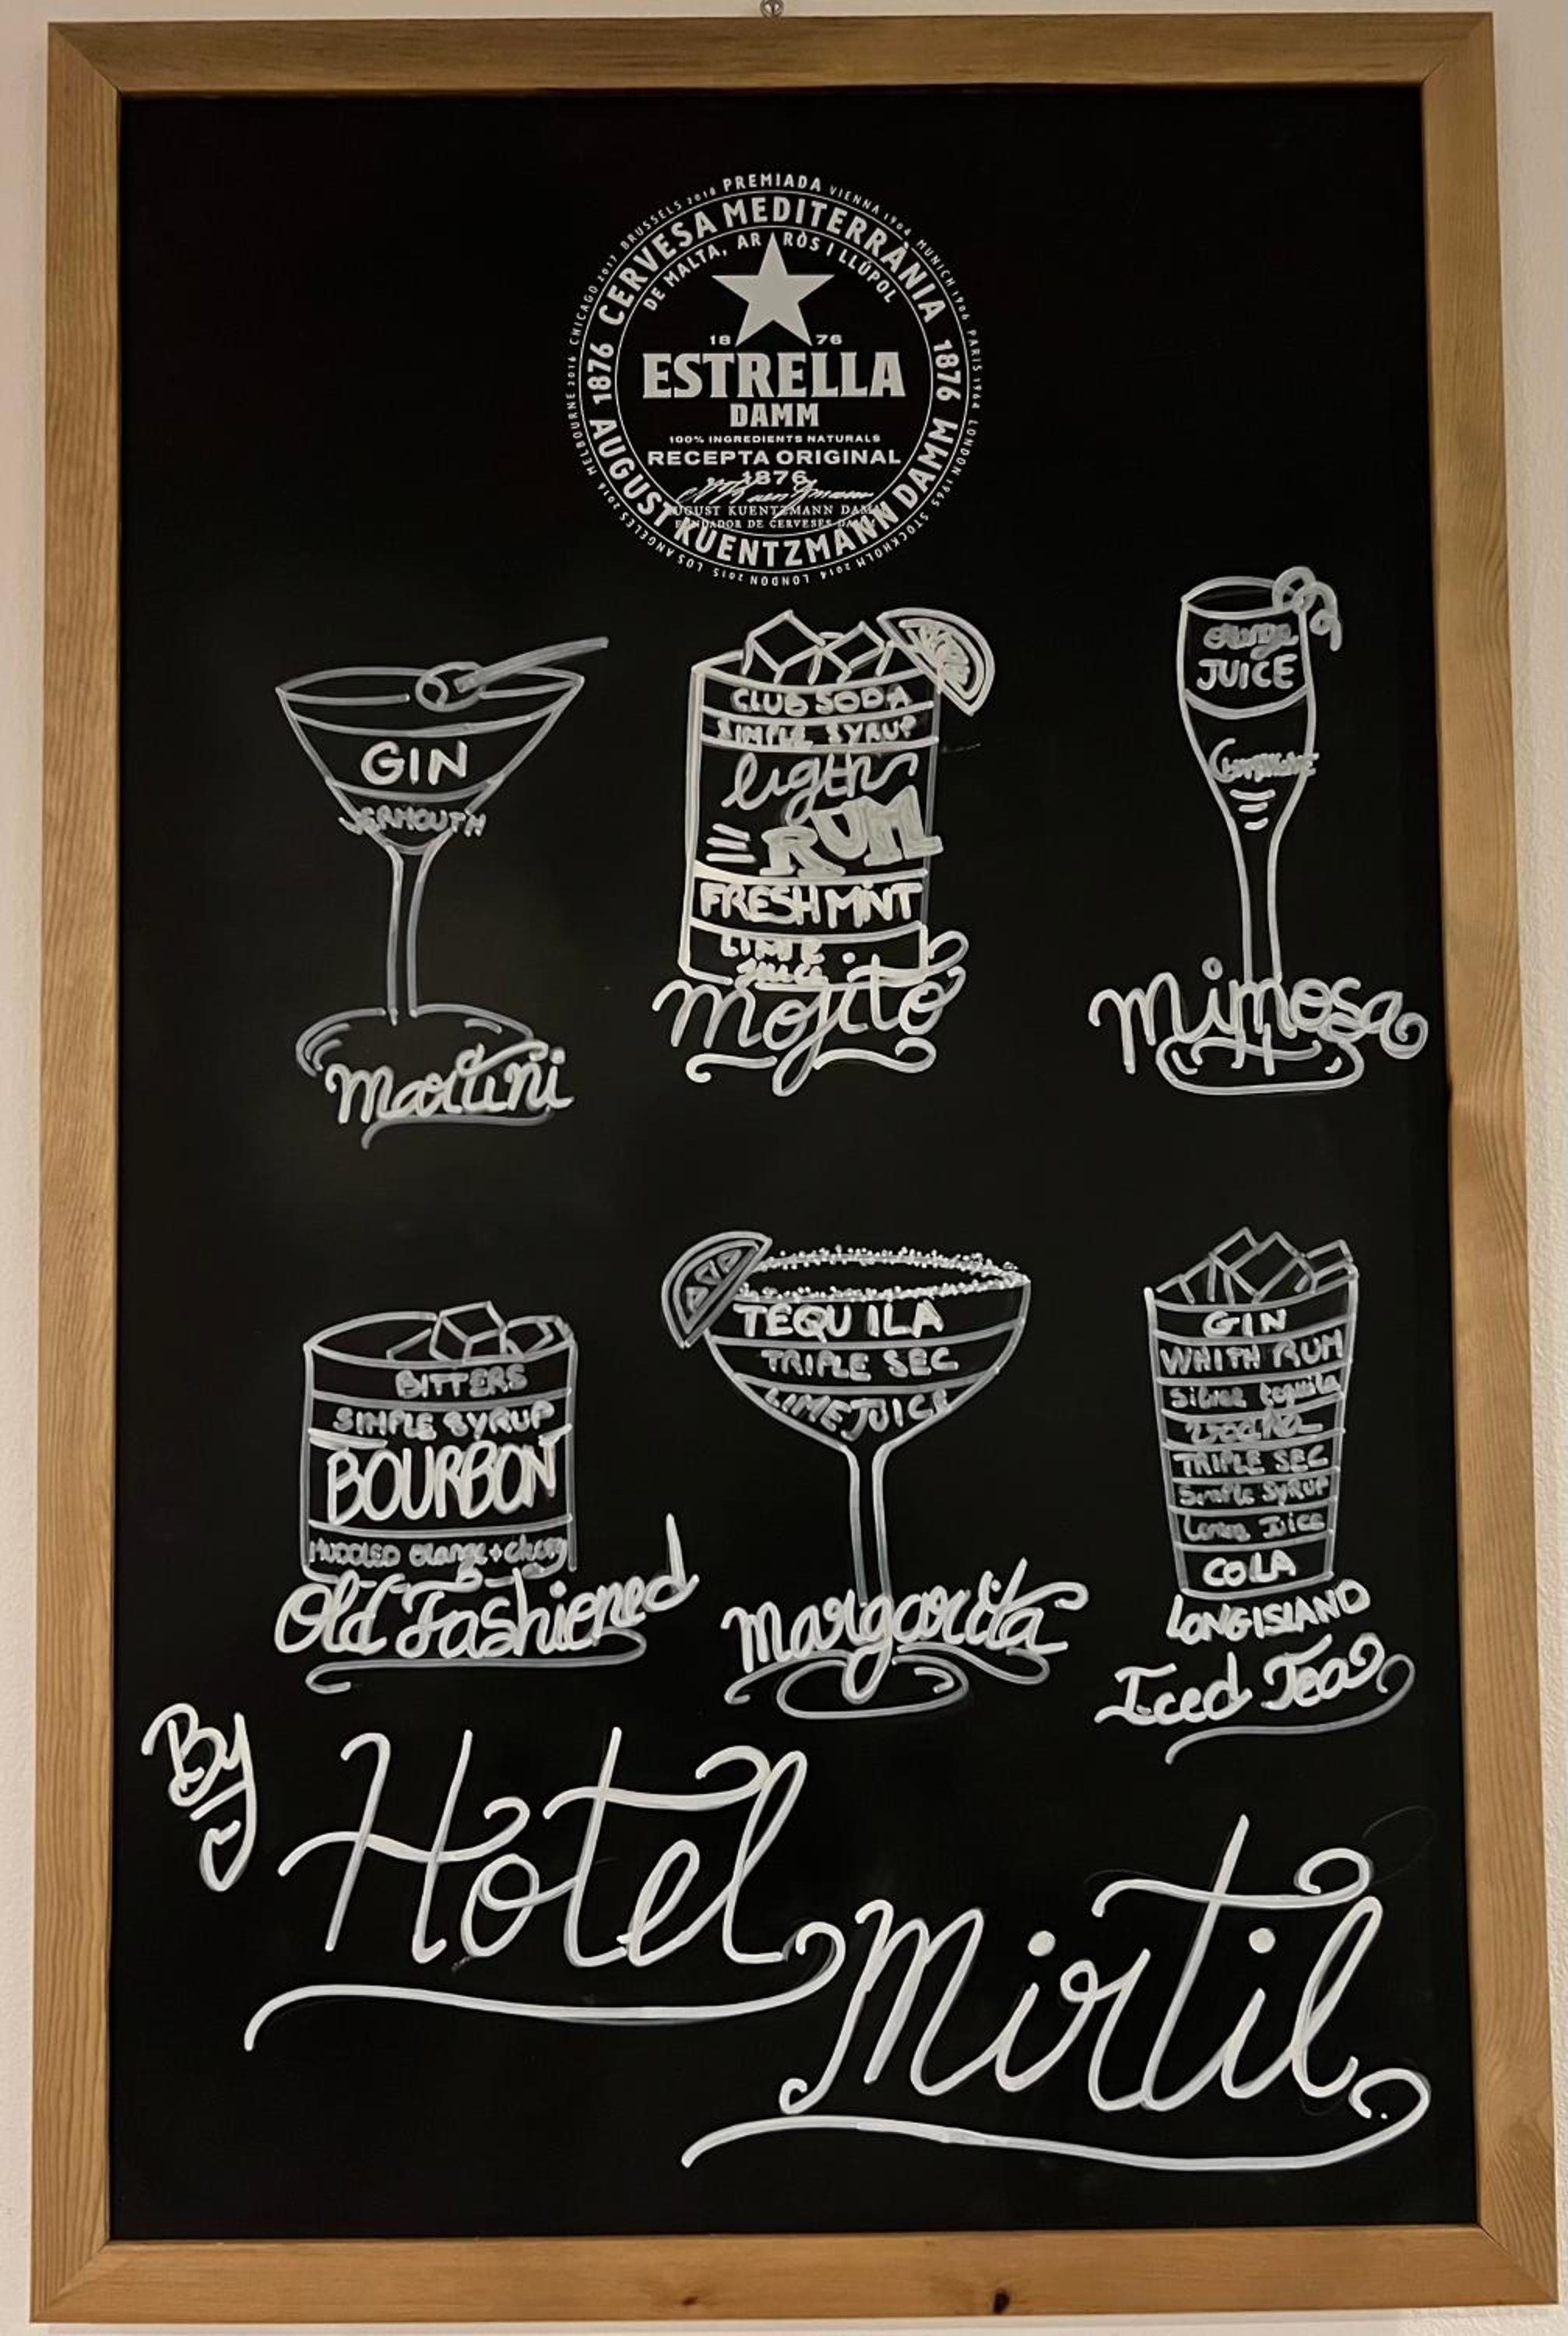 BRUSSELS 2018 PREMIADA VIENNA 1904 MUNICH 1906 PARIS 1964 LONDON 1965 STOCKHOLM 2014 LONDON 2015 LOS ANGELES 2016 MELBOURNE 2016 CHICAGO 2017
1876 CERVESA MEDITERRÀNIA 1876
DE MALTA, ARRÒS I LLÚPOL
18 76
ESTRELLA
DAMM
100% INGREDIENTS NATURALS
RECEPTA ORIGINAL
1876
AUGUST KUENTZMANN DAMM
FUNDADOR DE CERVESES DAMM
AUGUST KUENTZMANN DAMM
GIN
VERMOUTH
Martini
CLUB SODA
SIMPLE SYRUP
ligth
RUM
FRESH MINT
LIME
JUICE
Mojito
orange
JUICE
Mimosa
BITTERS
SIMPLE SYRUP
BOURBON
MUDDLED orange + cherry
Old Fashioned
TEQUILA
TRIPLE SEC
LIME JUICE
Margarita
GIN
WHITH RUM
Silver tequila
vodka
TRIPLE SEC
Simple SYRUP
Lemon Juice
COLA
LONG ISLAND
Iced Tea
By
Hotel
Mirtil